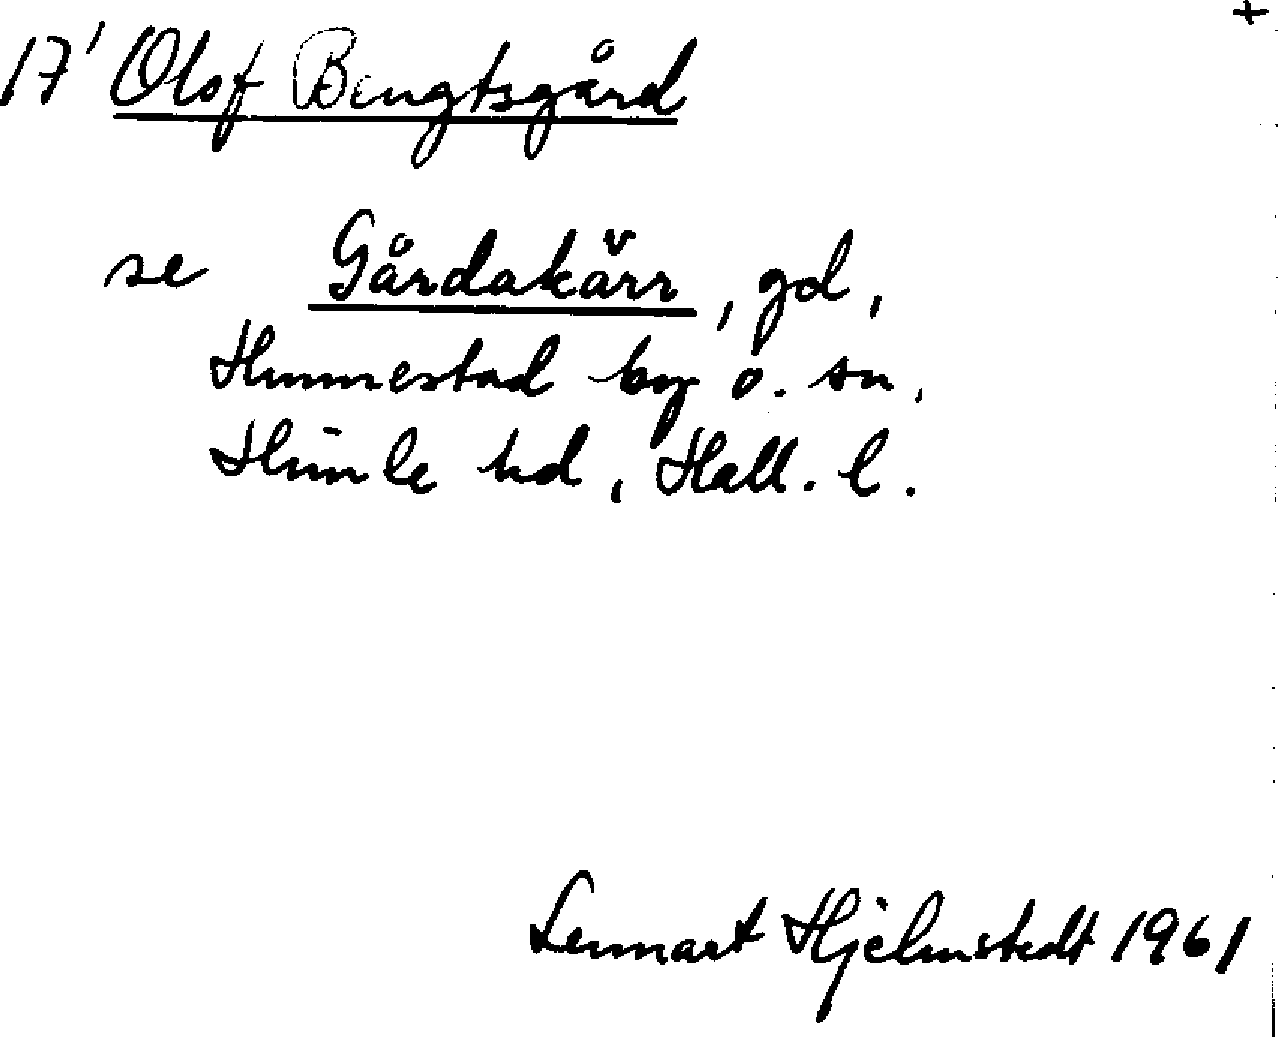 +
17' Olof Bengtsgård
se Gårdakärr, gd,
Hunnestad by o. sn,
Himle hd, Hall. l.
Lennart Hjelmstedt 1961